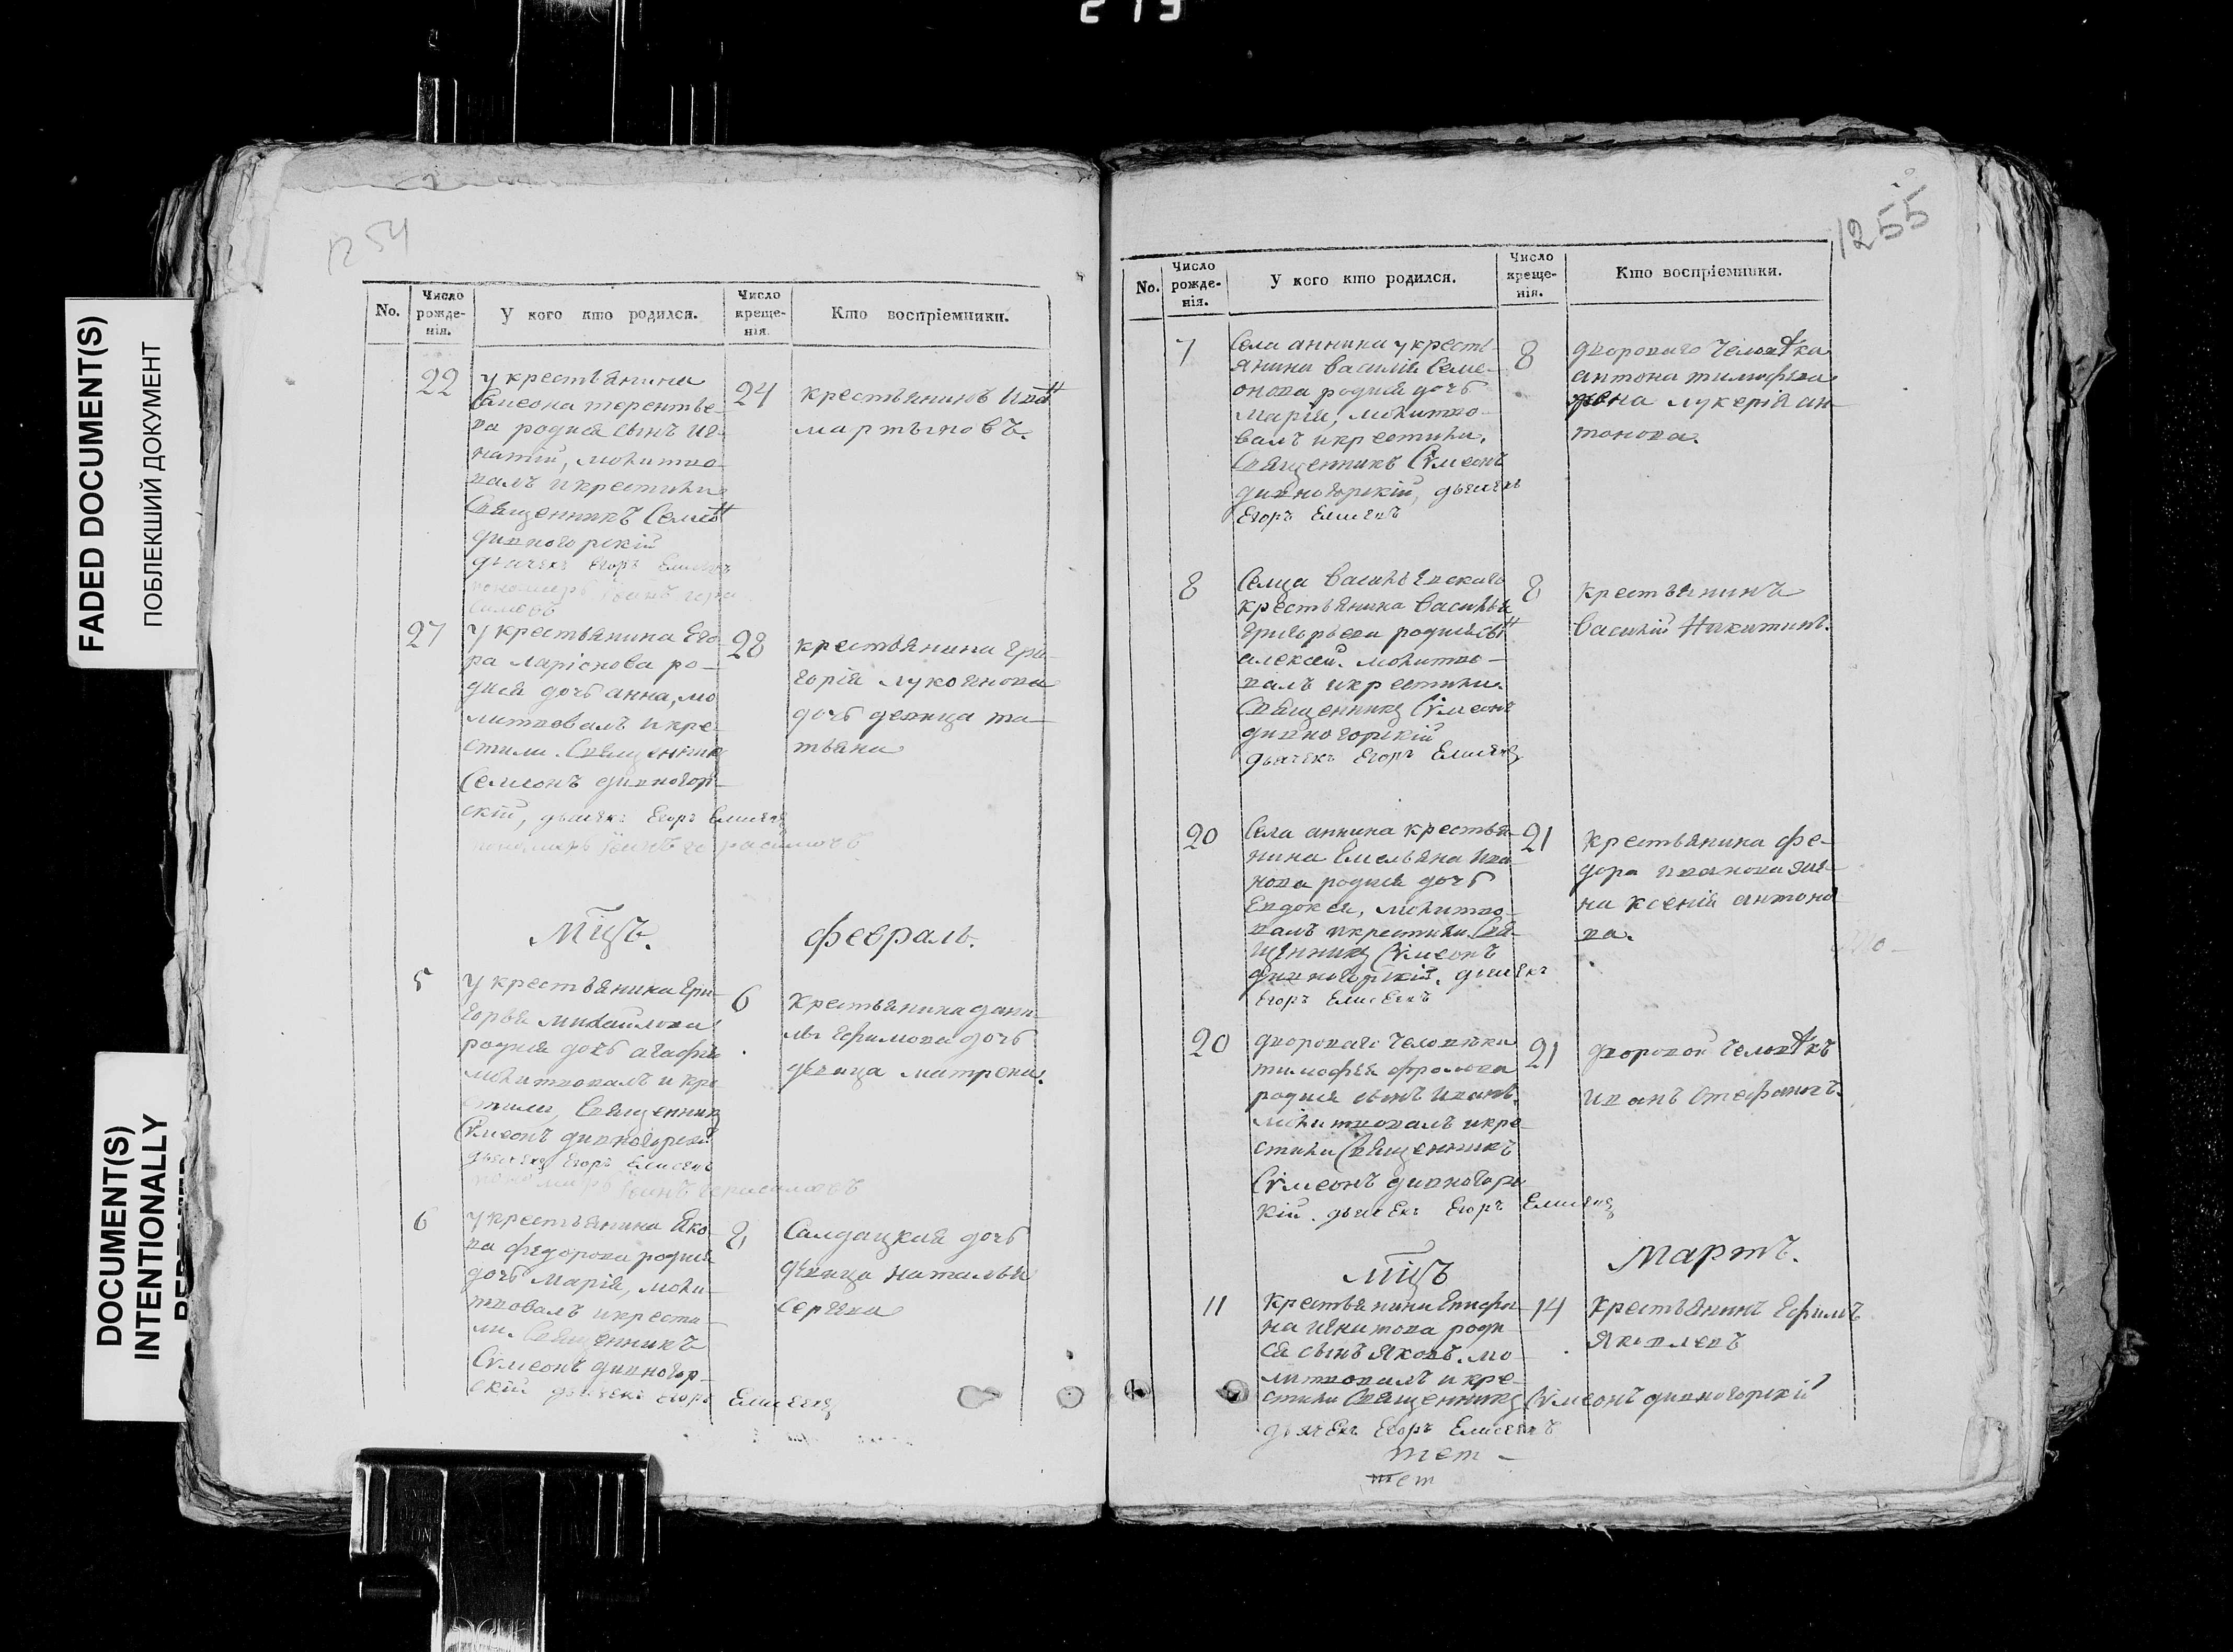 219
FADED DOCUMENT(S)
ПОБЛЕКШИЙ ДОКУМЕНТ
DOCUMENT(S)
INTENTIONALLY
1254
No.
Число рожде-нія.
У кого кто родился.
Число креще-нія.
Кто воспріемники.
22
у крестьянина
Симеона терентье-
ва родися сынъ иг-
натій, молитво-
валъ и крестили
Священникъ Семион
дивногорскій
дьячекъ Егоръ Елисеевъ
пономарь
24
крестьянинъ Иван
мартыновъ.
27
у крестьянина Его-
ра ларіонова ро-
дися дочь анна, мо
литвовалъ и кре-
стили. Священникъ
Семионъ дивногор-
скій, дьячекъ Егоръ Елисеевъ
пономарь
28
крестьянина гри-
горія лукоянова
дочь девица та-
тьяна
Мцъ.
февраль.
5
у крестьянина гри-
горья михайлова
родися дочь агафья
молитвовалъ и кре
стили, Священникъ
Сѵмеонъ дивногорскій
дьячекъ Егоръ Елисеевъ
пономарь
6
крестьянина дани-
лы ефимова дочь
девица матрена.
6
у крестьянина Яко-
ва федорова родися
дочь Марія, моли-
твовалъ и крести-
ли. Священникъ
Сѵмеонъ дивногор-
скій дьячекъ егоръ Елисеевъ
8
Салдацкая дочь
девица наталья
сергѣева
1255
No.
Число рожде-нія.
У кого кто родился.
Число креще-нія.
Кто воспріемники.
7
Села аннина у кресть-
янина василія Семе-
онова родися дочь
марія, молитво-
валъ и крестили.
Священникъ Сѵмеонъ
дивногорскій, дьячекъ
Егоръ Елисеевъ
8
двороваго человѣка
антона тимофеева
жена лукерія ан-
тонова.
8
Селца васильевскаго
крестьянина василья
григорьева родися сын
алексей. молитво-
валъ и крестили.
Священникъ Сѵмеонъ
дивногорскій
дьячекъ Егоръ Елисеевъ
8
крестьянинъ
василій Никитинъ.
20
Села аннина крестья-
нина Емельяна ива-
нова родися дочь
Евдокея, молитво-
валъ и крестили Свя-
щенникъ Сѵмеонъ
дивногорскій. дьячекъ
Егоръ Елисеевъ
21
крестьянина фе-
дора иванова же-
на ксенія антоно
ва.
20
двороваго человѣка
тимофея фролова
родися сынъ иванъ.
молитвовалъ и кре-
стили Священникъ
Сѵмеонъ дивногорс
кій. дьячекъ Егоръ Елисеевъ
21
дворовой человѣкъ
иванъ Стефановъ.
Мцъ
Мартъ.
11
крестьянина Епифа-
на игнатова роди-
ся сынъ яковъ. мо-
литвовалъ и кре-
стили Священникъ Сѵмеонъ дивногорскій
дьячекъ Егоръ Елисеевъ
14
крестьянинъ Ефимъ
Яковлевъ